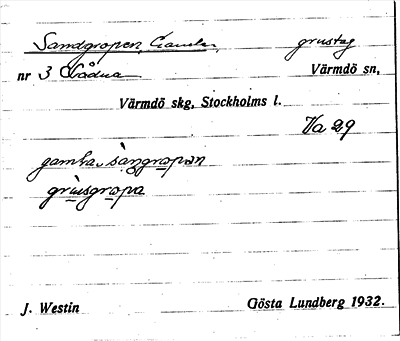 Sandgropen, Gamla grustag
nr 3 Värmdö sn,
Värmdö skg, Stockholms l.
Va 29
gamla sanŋgropen
grusgropa
J. Westin Gösta Lundberg 1932.